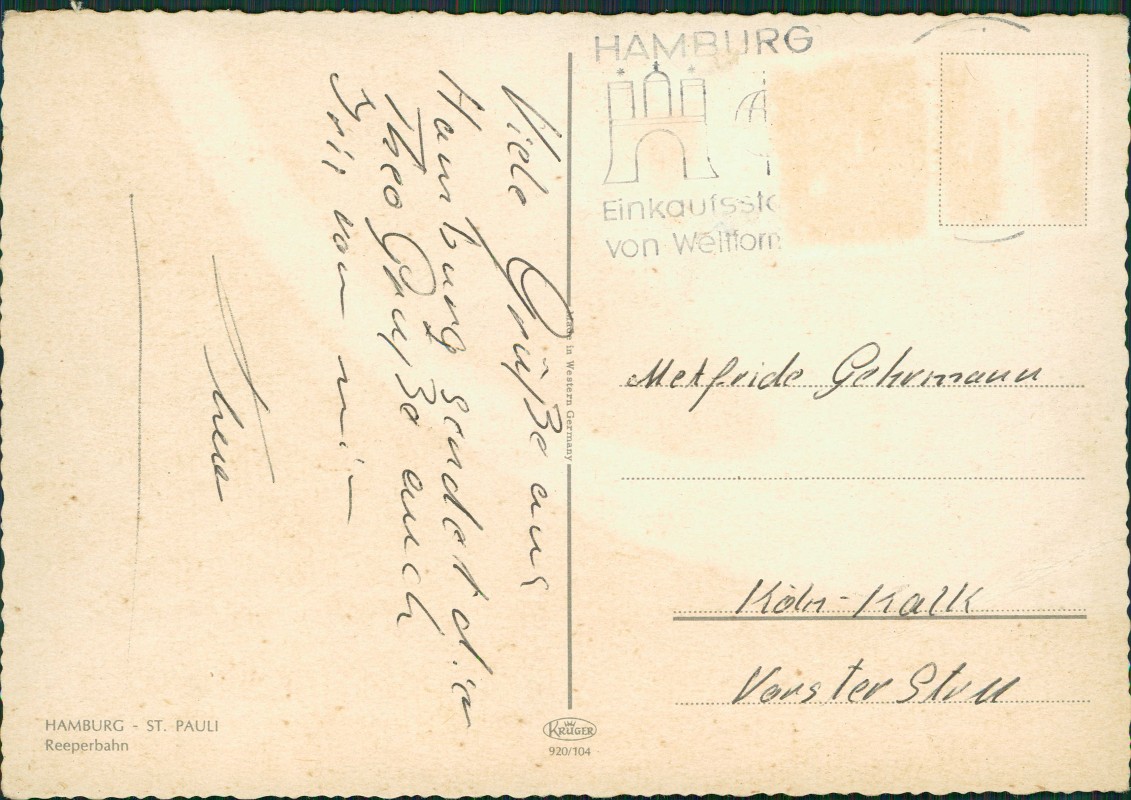 HAMBURG
Einkaufssta
von Weltform
Viele Grüße aus
Hamburg sendet dir
Theo Gruße auch
Iris von mir
Made in Western Germany
Metfride Gehrmann
Köln-Kalk
Vorster Str 11
HAMBURG - ST. PAULI
Reeperbahn
KRÜGER
920/104